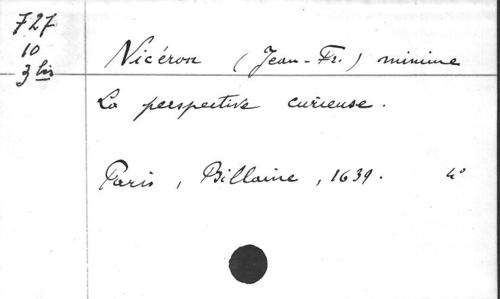 F 27
10
3 bis
Nicéron (Jean-Fr.) minime
La perspective curieuse.
Paris, Billaine, 1639. 4°